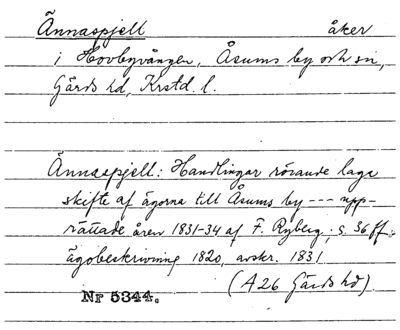 Ännaspjell åker
i Hovbyvången, Åsums by och sn,
Gärds hd, Krstd. l.
Ännaspjell: Handlingar rörande laga
skifte af ägorna till Åsums by --- upp-
rättade åren 1831-34 af F. Ryberg, s. 36 ff.
Ägobeskrivning 1820, avskr. 1831
(A26 Gärds hd)
Nr 5344.